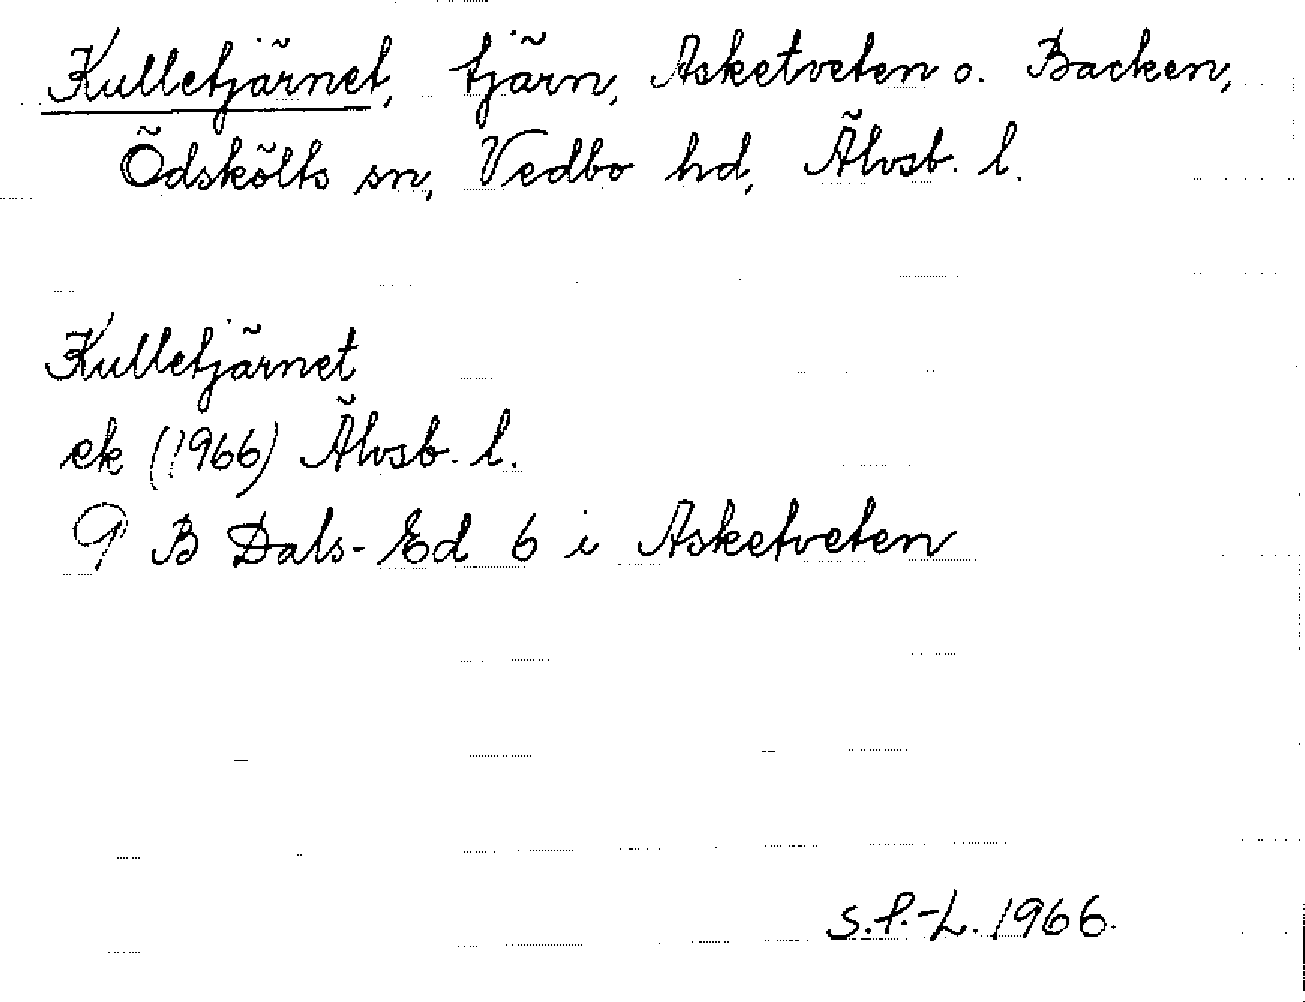 Kulletjärnet, tjärn, Asketveten o. Backen,
Ödskölts sn, Vedbo hd, Älvsb. l.
Kulletjärnet
ek (1966) Älvsb. l.
9 B Dals-Ed 6 i Asketveten
S.P.-L. 1966.